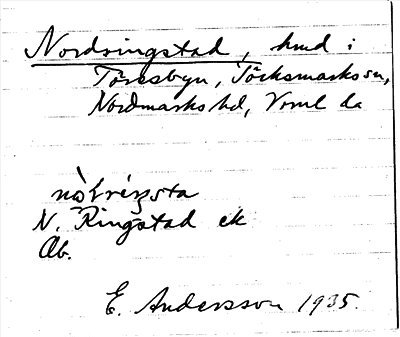 Nordringstad, hmd i
Töresbyn, Töcksmarks sn,
Nordmarks hd, Vrml da
N. Ringstad ek
Ab.
E. Andersson 1935.